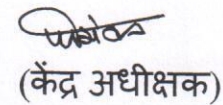 (केंद्र अधीक्षक)